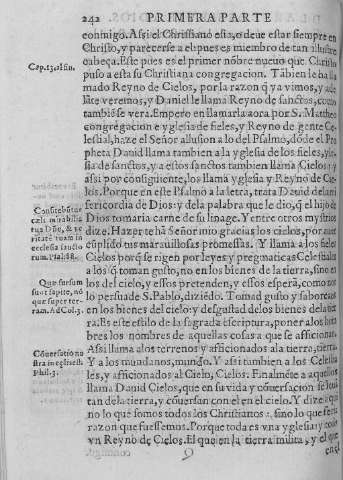 242 PRIMERA PARTE
conmigo. Assi el Christiano esta, o deue estar siempre en
Christo, y parecerse a el pues es miembro de tan illustre
cabeça. Este pues es el primer nõbre nueuo que Christo
puso a esta su Christiana congregacion. Tãbien le ha lla
mado Reyno de Cielos, por la razon q̃ ya vimos, y ade
lãte veremos, y Daniel le llama Reyno de sanctos, como
tambiẽ se vera. Empero en llamarla aora por S. Mattheo
congregacion e yglesia de fieles, y Reyno de gente Ce-
lestial, haze el Señor allusion a lo del Psalmo, dõde el Pro
pheta Dauid llama tambien a la yglesia de los fieles, ygle
sia de sanctos, y a estos sanctos tambien llama Cielos: y
assi por consiguiente, los llama yglesia y Reyno de Cie-
los. Porque en este Psalmo a la letra, trata Dauid de la mi
sericordia de Dios: y de la palabra que le dio, q̃ el hijo de
Dios tomaria carne de su linage. Y entre otros mysterios
dize. Hazerte hã Señor mio gracias los cielos, por auer
cũplido tus marauillosas promessas. Y llama a los fieles
Cielos porq̃ se rigen por leyes y pregmaticas Celestiales
a los q̃ toman gusto, no en los bienes de la tierra, sino en
los del cielo, y essos pretenden, y essos esperã, como nos
lo persuade S. Pablo, diziẽdo. Tomad gusto y saboreaos
en los bienes del cielo: y desgustad de los bienes de la tier
ra. Es este estilo de la sagrada escriptura, poner a los hom
bres los nombres de aquellas cosas a que se aficionan.
Assi llama a los terrenos y afficionados a la tierra, tierra.
Y a los mundanos, mundo. Y assi tambien a los Celestia
les, y afficionados al Cielo, Cielos. Finalmẽte a aquellos
llama Dauid Cielos, que en su vida y cõuersacion se leuã
tan de la tierra, y cõuersan con el en el cielo. Y dize aqui
no lo que somos todos los Christianos, sino lo que seria
razon que fuessemos. Porque toda es vna yglesia y todo
vn Reyno de Cielos. El que en la tierra milita, y el que
en el
Cap. 13. al fin.
Confitebũtur
cæli mirabilia
tua Dñe, & ve
ritatẽ tuam in
ecclesia sancto
rum. Psal. 88.
Quæ sursum
sunt sapite, nõ
quæ super ter-
ram. Ad Col. 3.
Cõuersatio no
stra in cęlis est.
Phil. 3.
Q